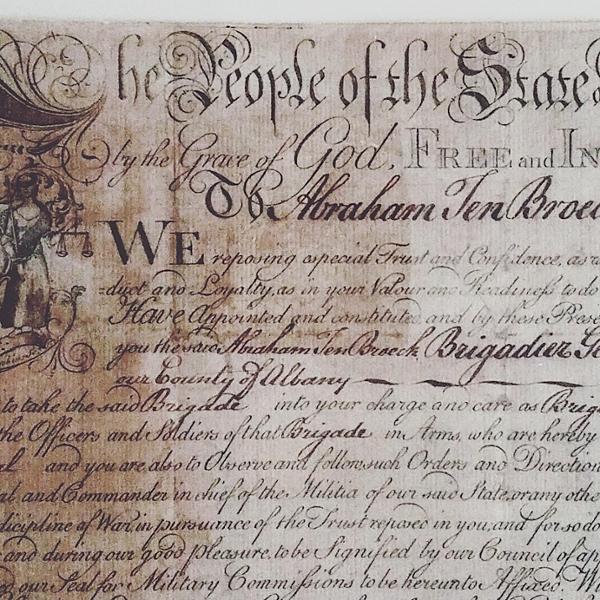 The People of the State
by the Grace of God, FREE and IN
To Abraham Ten Broec
WE reposing a special Trust and Confidence, as w
duct and Loyalty, as in your Valour and Readiness to do
Have Appointed and constituted, and by these Prese
you the said Abraham Ten Broeck, Brigadier Ge
our County of Albany
to take the said Brigade into your charge and care as Brig
the Officers and Soldiers of that Brigade in Arms, who are hereby
and you are also to Observe and follow such Orders and Direction
and Commander in chief of the Militia of our said State, or any othe
discipline of War, in pursuance of the Trust reposed in you, and for so do
and during our good pleasure, to be Signified by our Council of ap
our Seal for Military Commissions to be hereunto Affixed. Wi